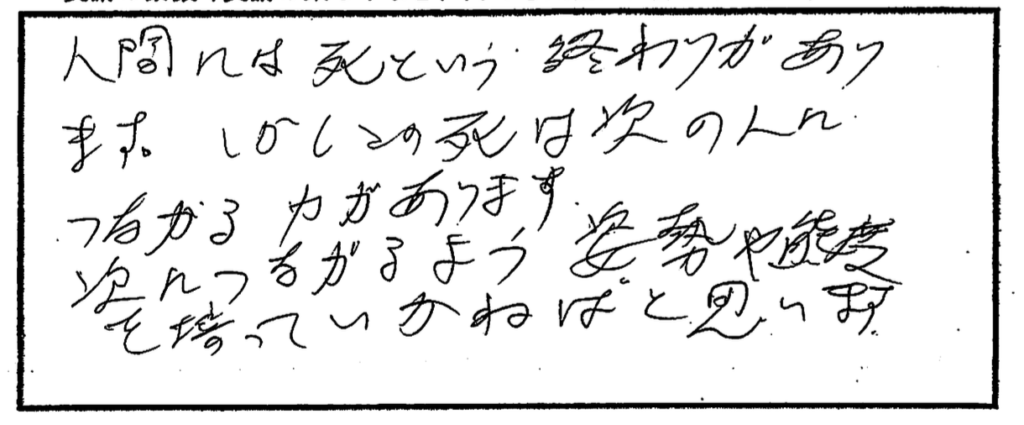 人間には死という終わりがあり
ます。しかしこの死は次の人に
つながる力があります。
次につながるよう姿勢や態度
を培っていかねばと思います。